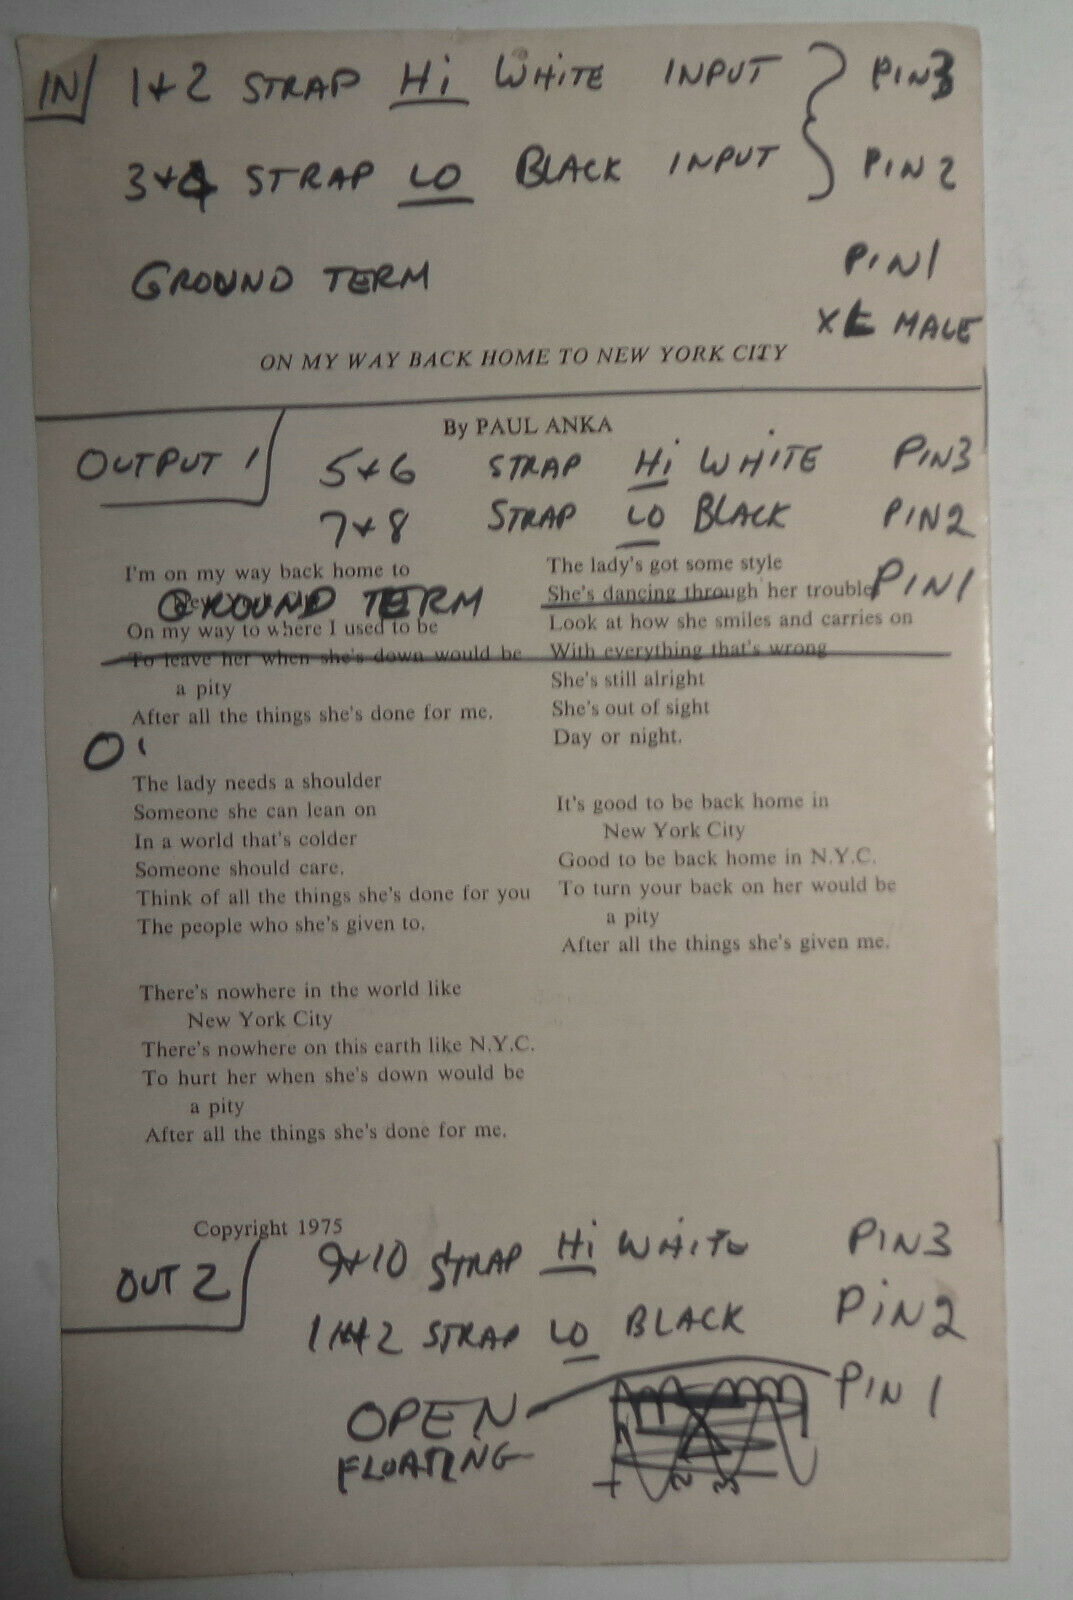 IN 1+2 STRAP Hi WHITE INPUT PIN3
3+4 STRAP LO BLACK INPUT PIN2
GROUND TERM PIN1
XL MALE
ON MY WAY BACK HOME TO NEW YORK CITY
By PAUL ANKA
OUTPUT 1 5+6 STRAP Hi WHITE PIN3
7+8 STRAP LO BLACK PIN2
GROUND TERM PIN1
I'm on my way back home to
On my way to where I used to be
To leave her when she's down would be
a pity
After all the things she's done for me.
The lady needs a shoulder
Someone she can lean on
In a world that's colder
Someone should care.
Think of all the things she's done for you
The people who she's given to.
There's nowhere in the world like
New York City
There's nowhere on this earth like N.Y.C.
To hurt her when she's down would be
a pity
After all the things she's done for me.
The lady's got some style
She's dancing through her trouble
Look at how she smiles and carries on
With everything that's wrong
She's still alright
She's out of sight
Day or night.
It's good to be back home in
New York City
Good to be back home in N.Y.C.
To turn your back on her would be
a pity
After all the things she's given me.
Copyright 1975
OUT 2 9+10 STRAP Hi WHITE PIN3
STRAP LO BLACK PIN2
OPEN PIN 1
FLOATING